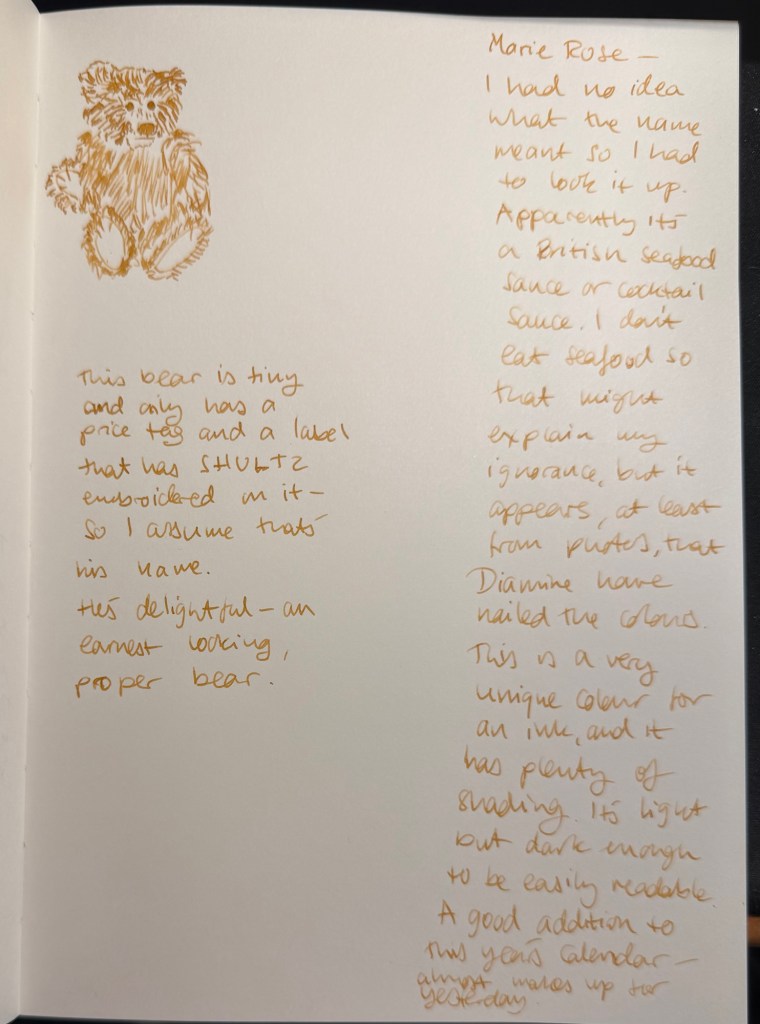 This bear is tiny
and only has a
price tag and a label
that has SHULTZ
embroidered on it –
so I assume that's
his name.
He's delightful – an
earnest looking,
proper bear.
Marie Rose –
I had no idea
what the name
meant so I had
to look it up.
Apparently it's
a British seafood
sauce or cocktail
sauce. I don't
eat seafood so
that might
explain my
ignorance, but it
appears, at least
from photos, that
Diamine have
nailed the colours.
This is a very
unique colour for
an ink, and it
has plenty of
shading. It's light
but dark enough
to be easily readable.
A good addition to
this year's Calendar –
almost makes up for
yesterday.